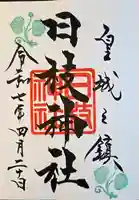 皇城之鎮
日枝神社
令和七年四月二十日